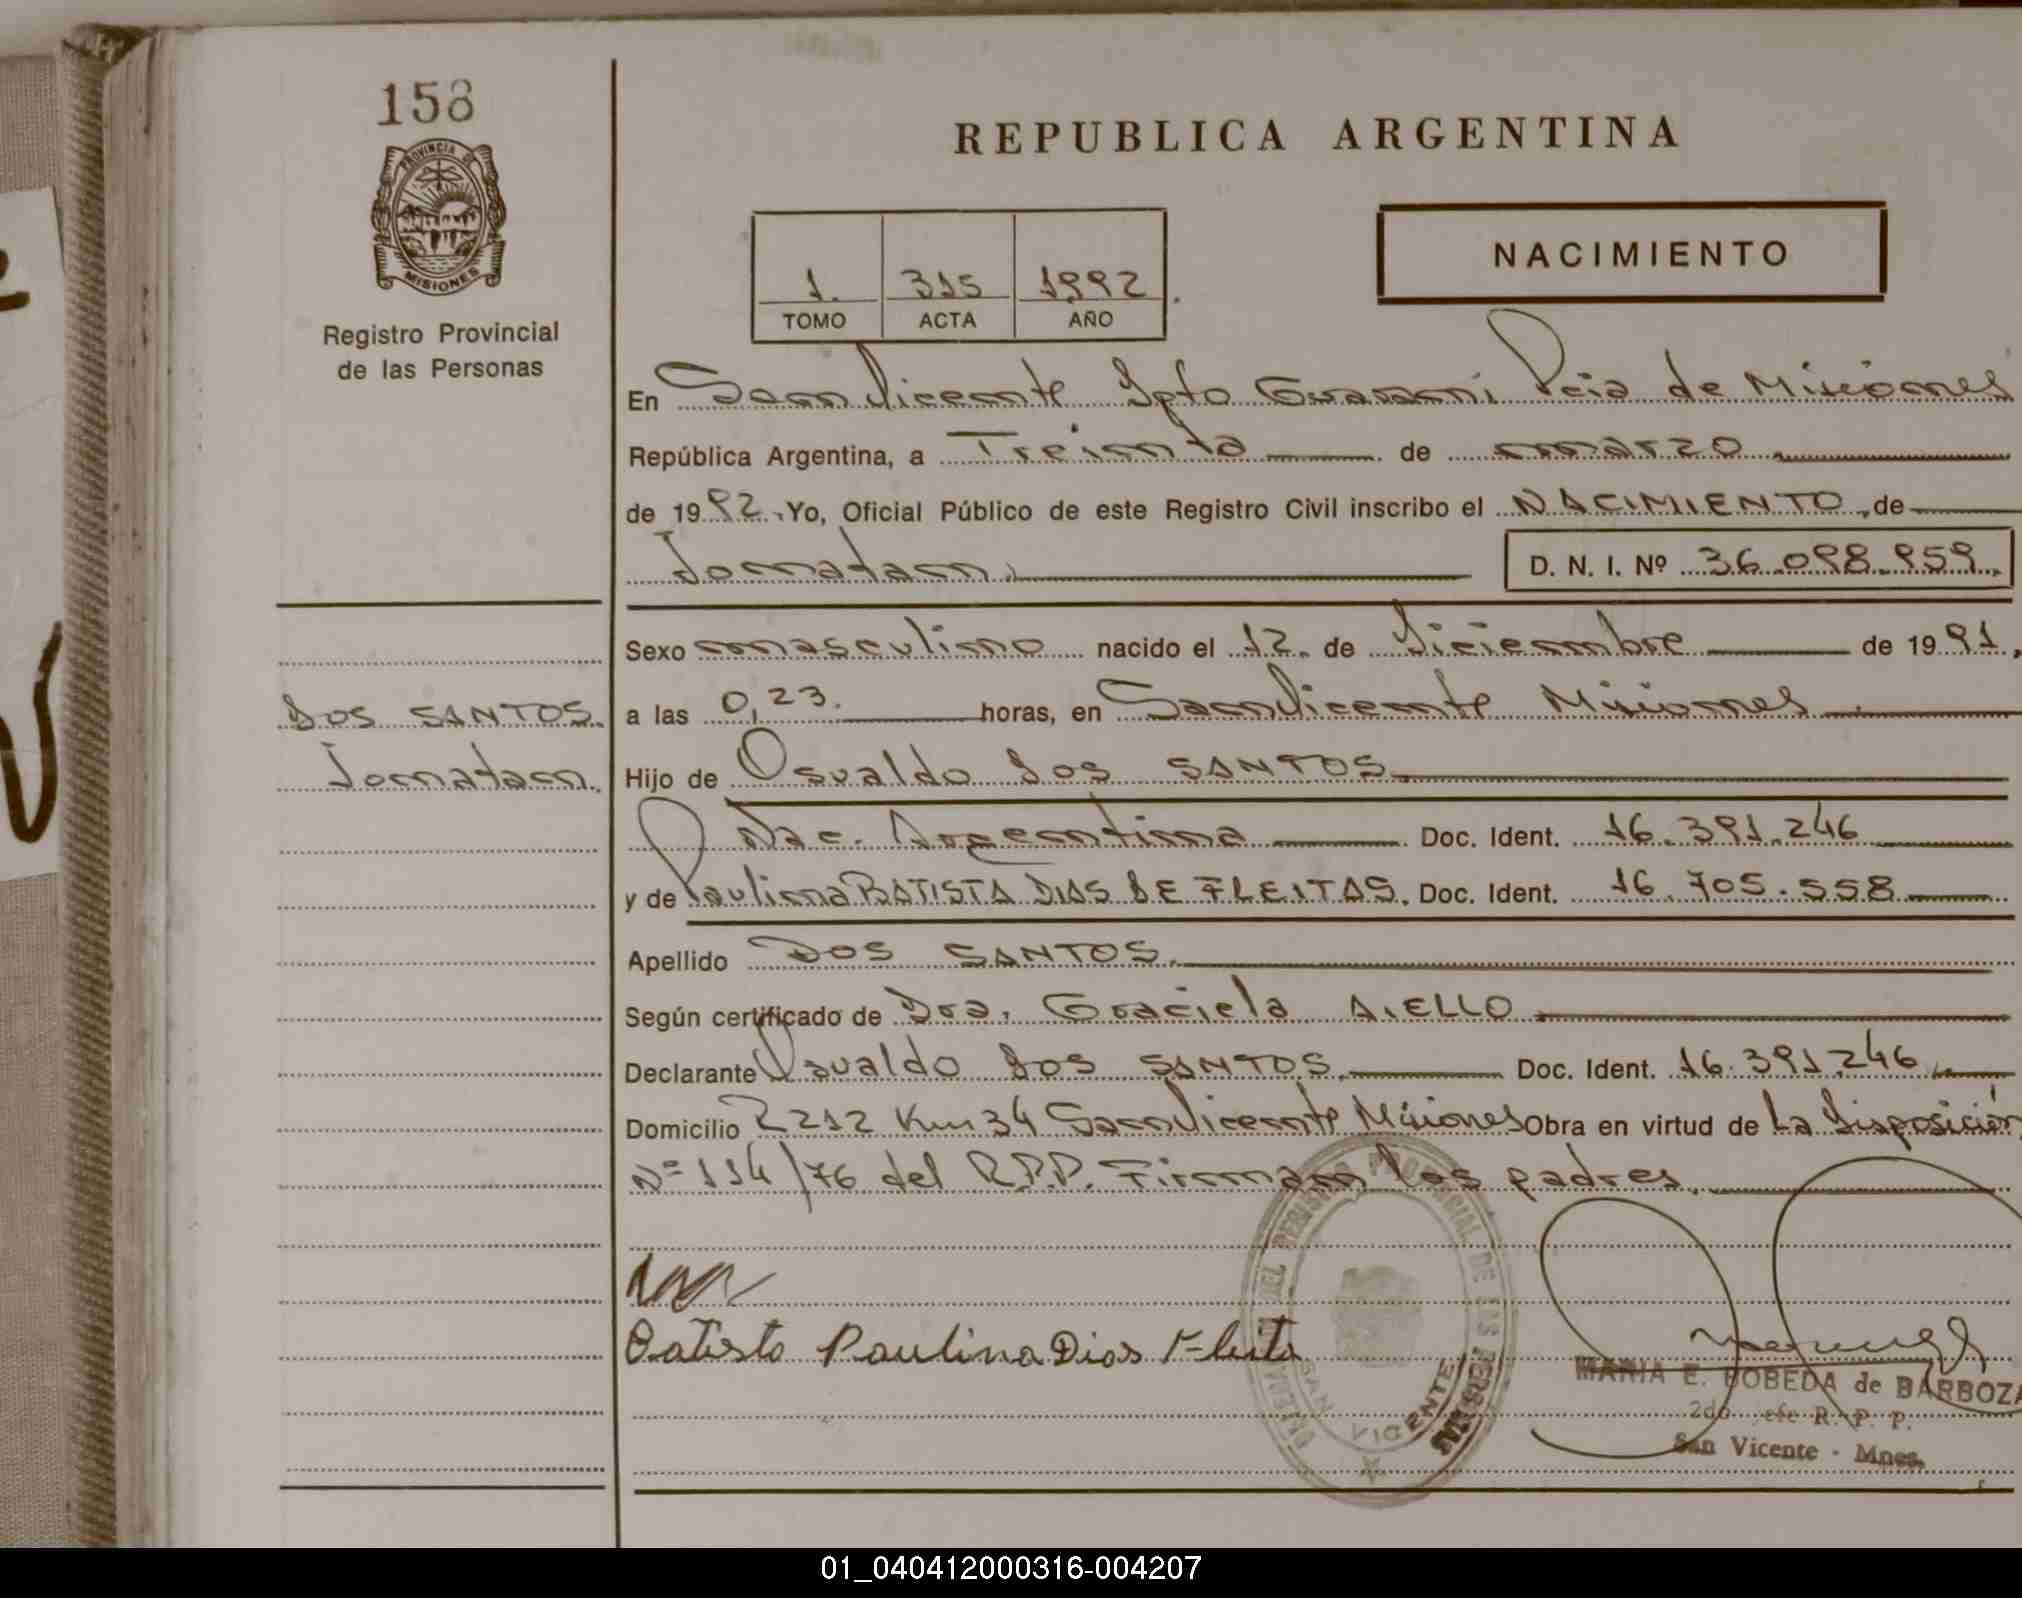 158
PROVINCIA DE
MISIONES
Registro Provincial
de las Personas
REPUBLICA ARGENTINA
NACIMIENTO
1. 315 1992
TOMO ACTA AÑO
En San Vicente Dpto Guaraní Pcia de Misiones
República Argentina, a Treinta de marzo
de 1992. Yo, Oficial Público de este Registro Civil inscribo el NACIMIENTO, de
Jonatan. D. N. I. Nº 36.098.959.
Sexo masculino nacido el 12. de Diciembre de 1991.
DOS SANTOS. a las 0,23. horas, en San Vicente Misiones
Jonatan. Hijo de Osvaldo Dos SANTOS
Nac. Argentina Doc. Ident. 16.391.246
y de Paulina BATISTA DIAS DE FLEITAS. Doc. Ident. 16.705.558
Apellido DOS SANTOS.
Según certificado de Dra. Graciela AIELLO
Declarante Osvaldo Dos SANTOS. Doc. Ident. 16.391.246
Domicilio R 212 Km 34 San Vicente Misiones Obra en virtud de La Disposición
Nº 114/76 del R.P.P. Firman los padres.
Batista Paulina Dias Fleita
DEL REGISTRO PROVINCIAL DE LAS PERSONAS
SAN VICENTE
MARIA E. BOBEDA de BARBOZA
2do. Jefe R. P. P.
San Vicente - Mnes.
01_040412000316-004207